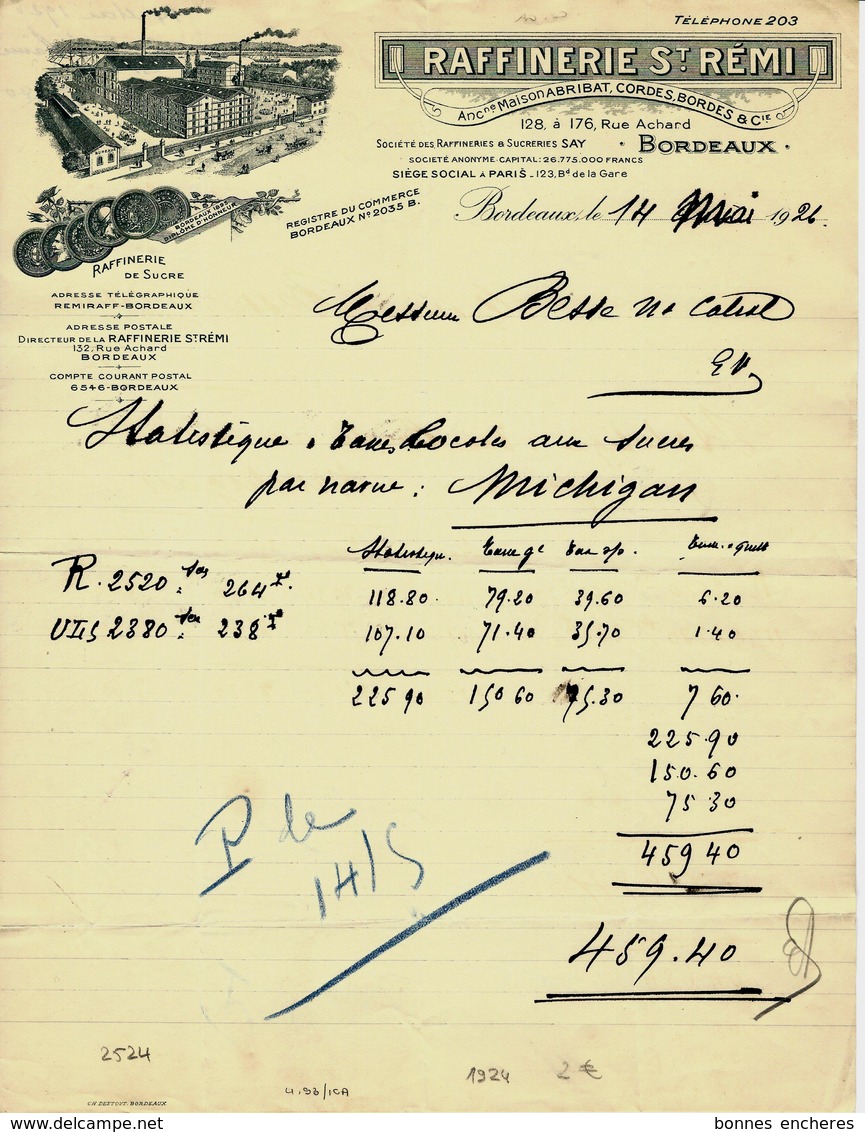 TÉLÉPHONE 203
RAFFINERIE ST. RÉMI
Ancne Maison ABRIBAT, CORDES, BORDES & CIE
128, à 176, Rue Achard
SOCIÉTÉ DES RAFFINERIES & SUCRERIES SAY • BORDEAUX •
SOCIÉTÉ ANONYME-CAPITAL: 26.775.000 FRANCS
SIÈGE SOCIAL À PARIS - 123, Bd de la Gare
BORDEAUX 1895
DIPLÔME D'HONNEUR
REGISTRE DU COMMERCE
BORDEAUX No 2035 B.
Bordeaux, le 14 Mai 1926
RAFFINERIE
DE SUCRE
ADRESSE TÉLÉGRAPHIQUE
REMIRAFF-BORDEAUX
ADRESSE POSTALE
DIRECTEUR DE LA RAFFINERIE ST. RÉMI
132, Rue Achard
BORDEAUX
COMPTE COURANT POSTAL
6546-BORDEAUX
Messieurs Besse
EV
Statistique Taxes aux sucres
par navire : Michigan
Statistique. Taxe
R. 2520 264 118.80 79.20 39.60 6.20
2380 238 107.10 71.40 35.70 1.40
225 90 150 60 75.30 7 60.
225.90
150.60
75 30
459 40
459.40
P de
14/5
2524
4.93/ICA
1924 2 €
CH. DESTOUT. BORDEAUX
bonnes encheres